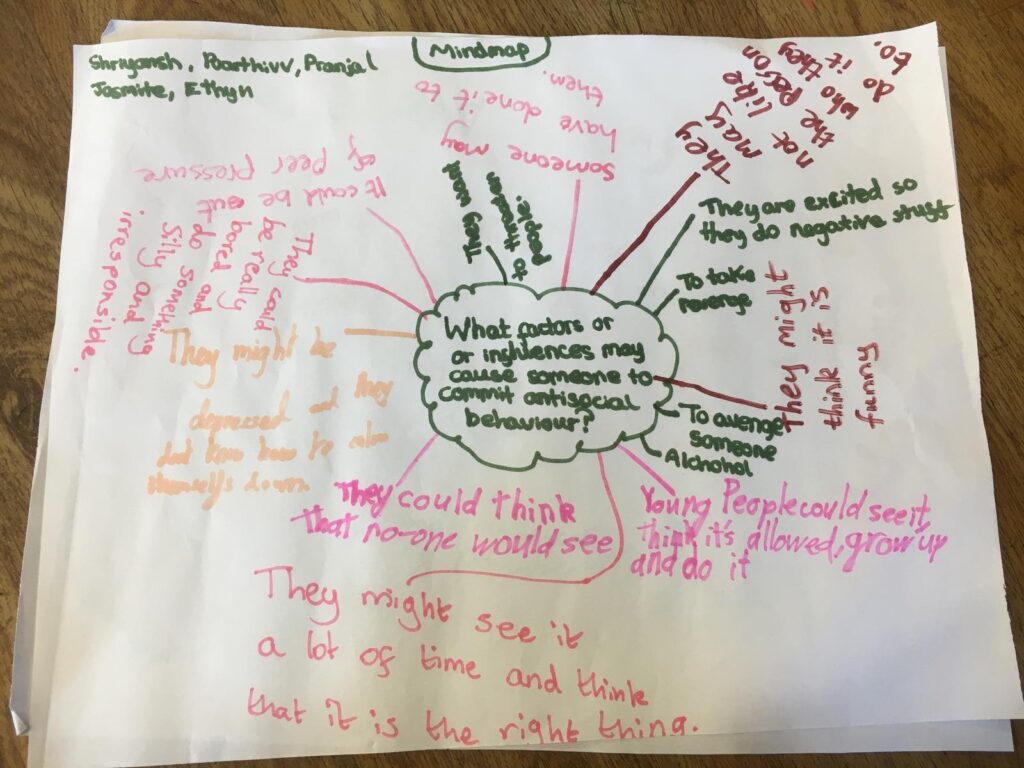 Mindmap
Shriyansh, Paarthivv, Pranjal
Jasmite, Ethyn
What factors or
or influences may
cause someone to
commit antisocial
behaviour?
They want
to threaten
people.
someone may
have done it to
them.
They
may
not like
the person
who they
do it
to.
They are excited so
they do negative stuff
To take
revenge
They might
think it is
funny
To avenge
someone
Alchohol
Young People could see it,
think it's allowed, grow up
and do it
They might see it
a lot of time and think
that it is the right thing.
They could think
that no-one would see
They might be
depressed and they
dont know how to calm
themselfs down.
They could
be really
bored and
do something
silly and
irresponsible.
It could be out
of peer pressure